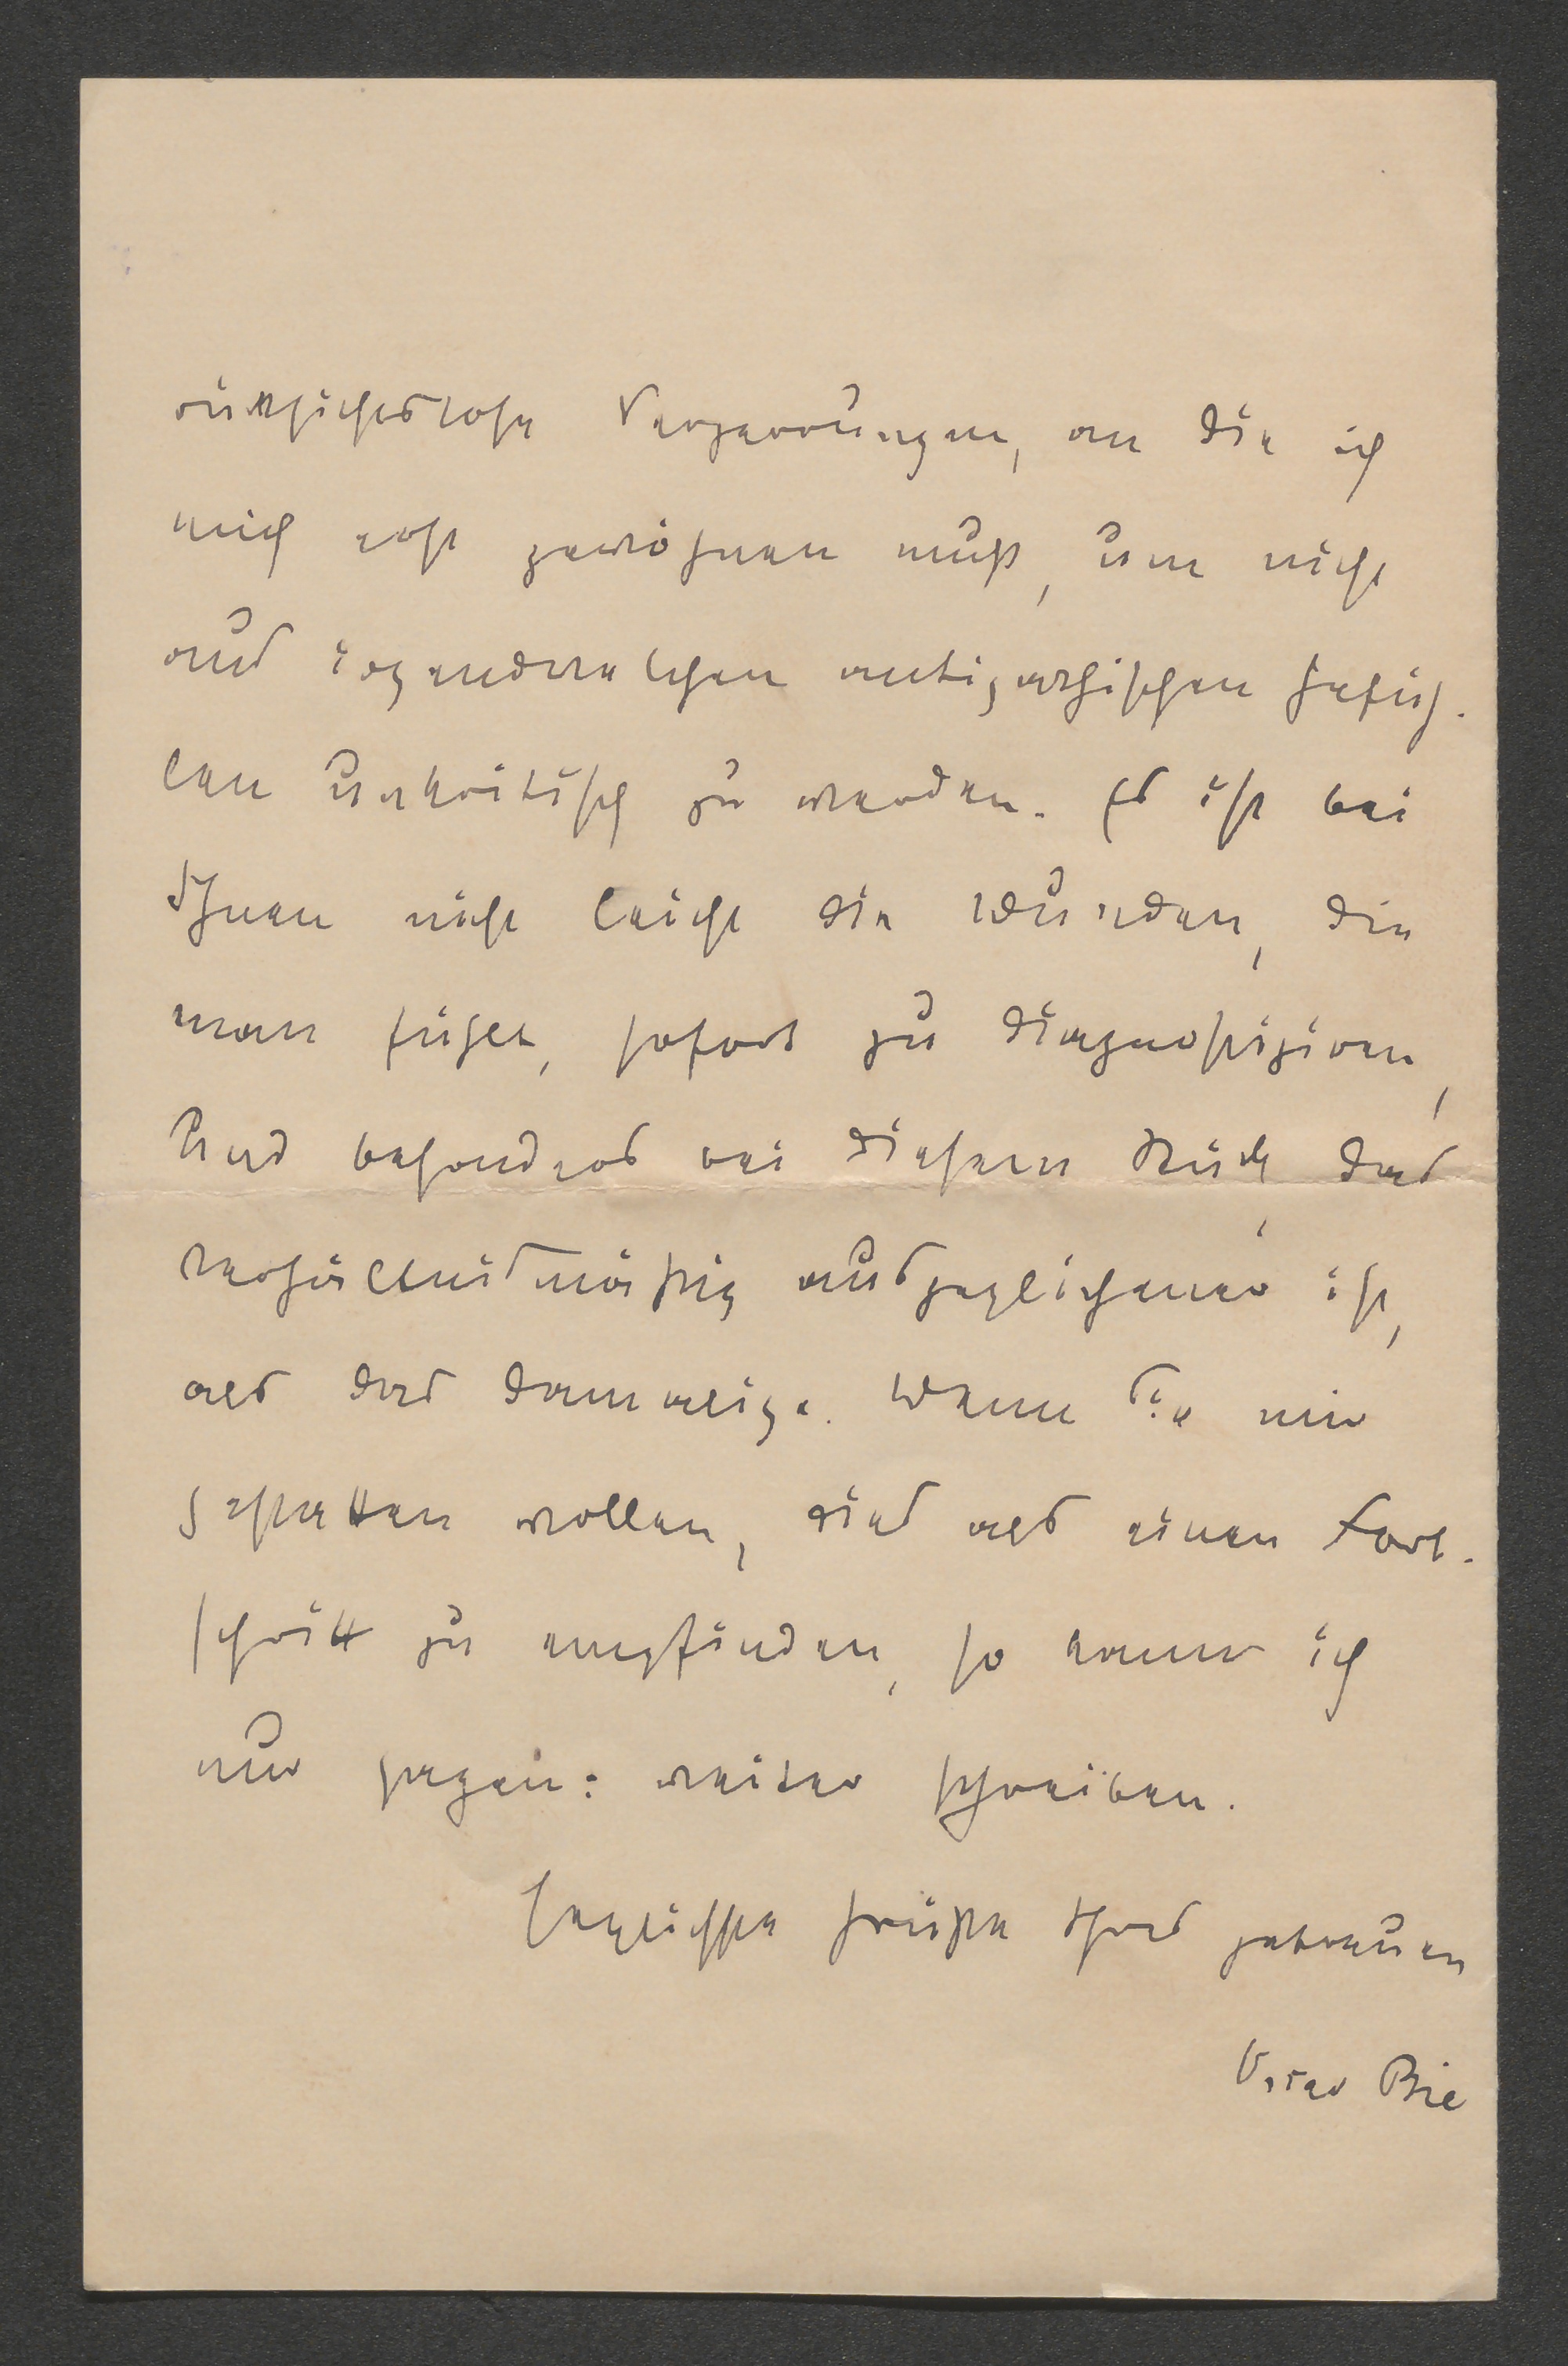 rücksichtslose Verzerrungen, an die ich
mich erst gewöhnen muß, um nicht
aus irgendwelchen antipathischen Gefüh-
len unkritisch zu werden. Es ist bei
Ihnen nicht leicht die Wunden, die
man fühlt, sofort zu diagnostiziren,
Und besonders bei diesem Stück, das
verhältnismäßig ausgeglichener ist,
als das damalige. Wenn Sie mir
gestatten wollen, dies als einen Fort-
schritt zu empfinden, so kann ich
nur sagen: weiter schreiben.
Herzlichste Grüße Ihres getreuen
Oscar Bie